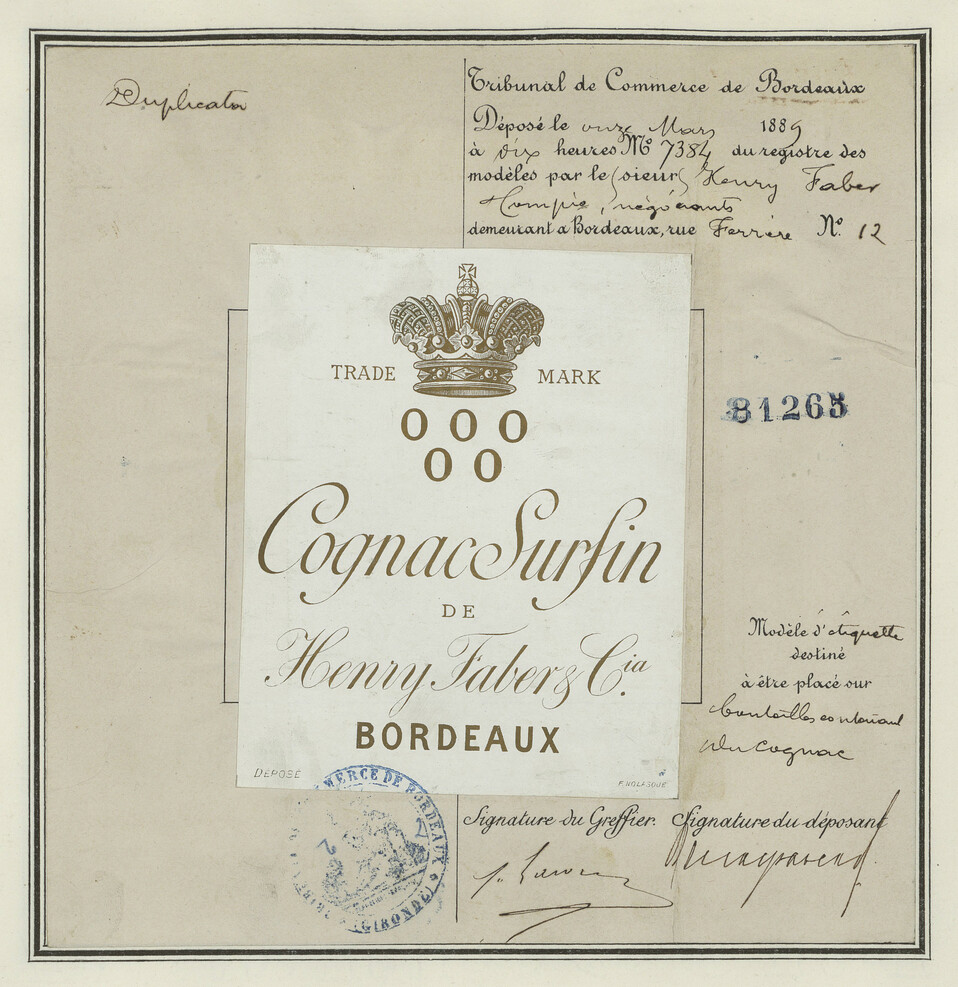 Duplicata
Tribunal de Commerce de Bordeaux
Déposé le onze Mars 1889
à dix heures N° 7384 du registre des
modèles par le sieurs Henry Faber
& Compie, négociants
demeurant à Bordeaux, rue Ferrère N° 12
TRADE MARK
000
00
81265
Cognac Surfin
DE
Henry Faber & Cia
BORDEAUX
DÉPOSÉ
Modèle d'étiquette
destiné
à être placé sur
bouteilles contenant
du cognac
COMMERCE DE BORDEAUX
(GIRONDE)
Signature du Greffier. Signature du déposant